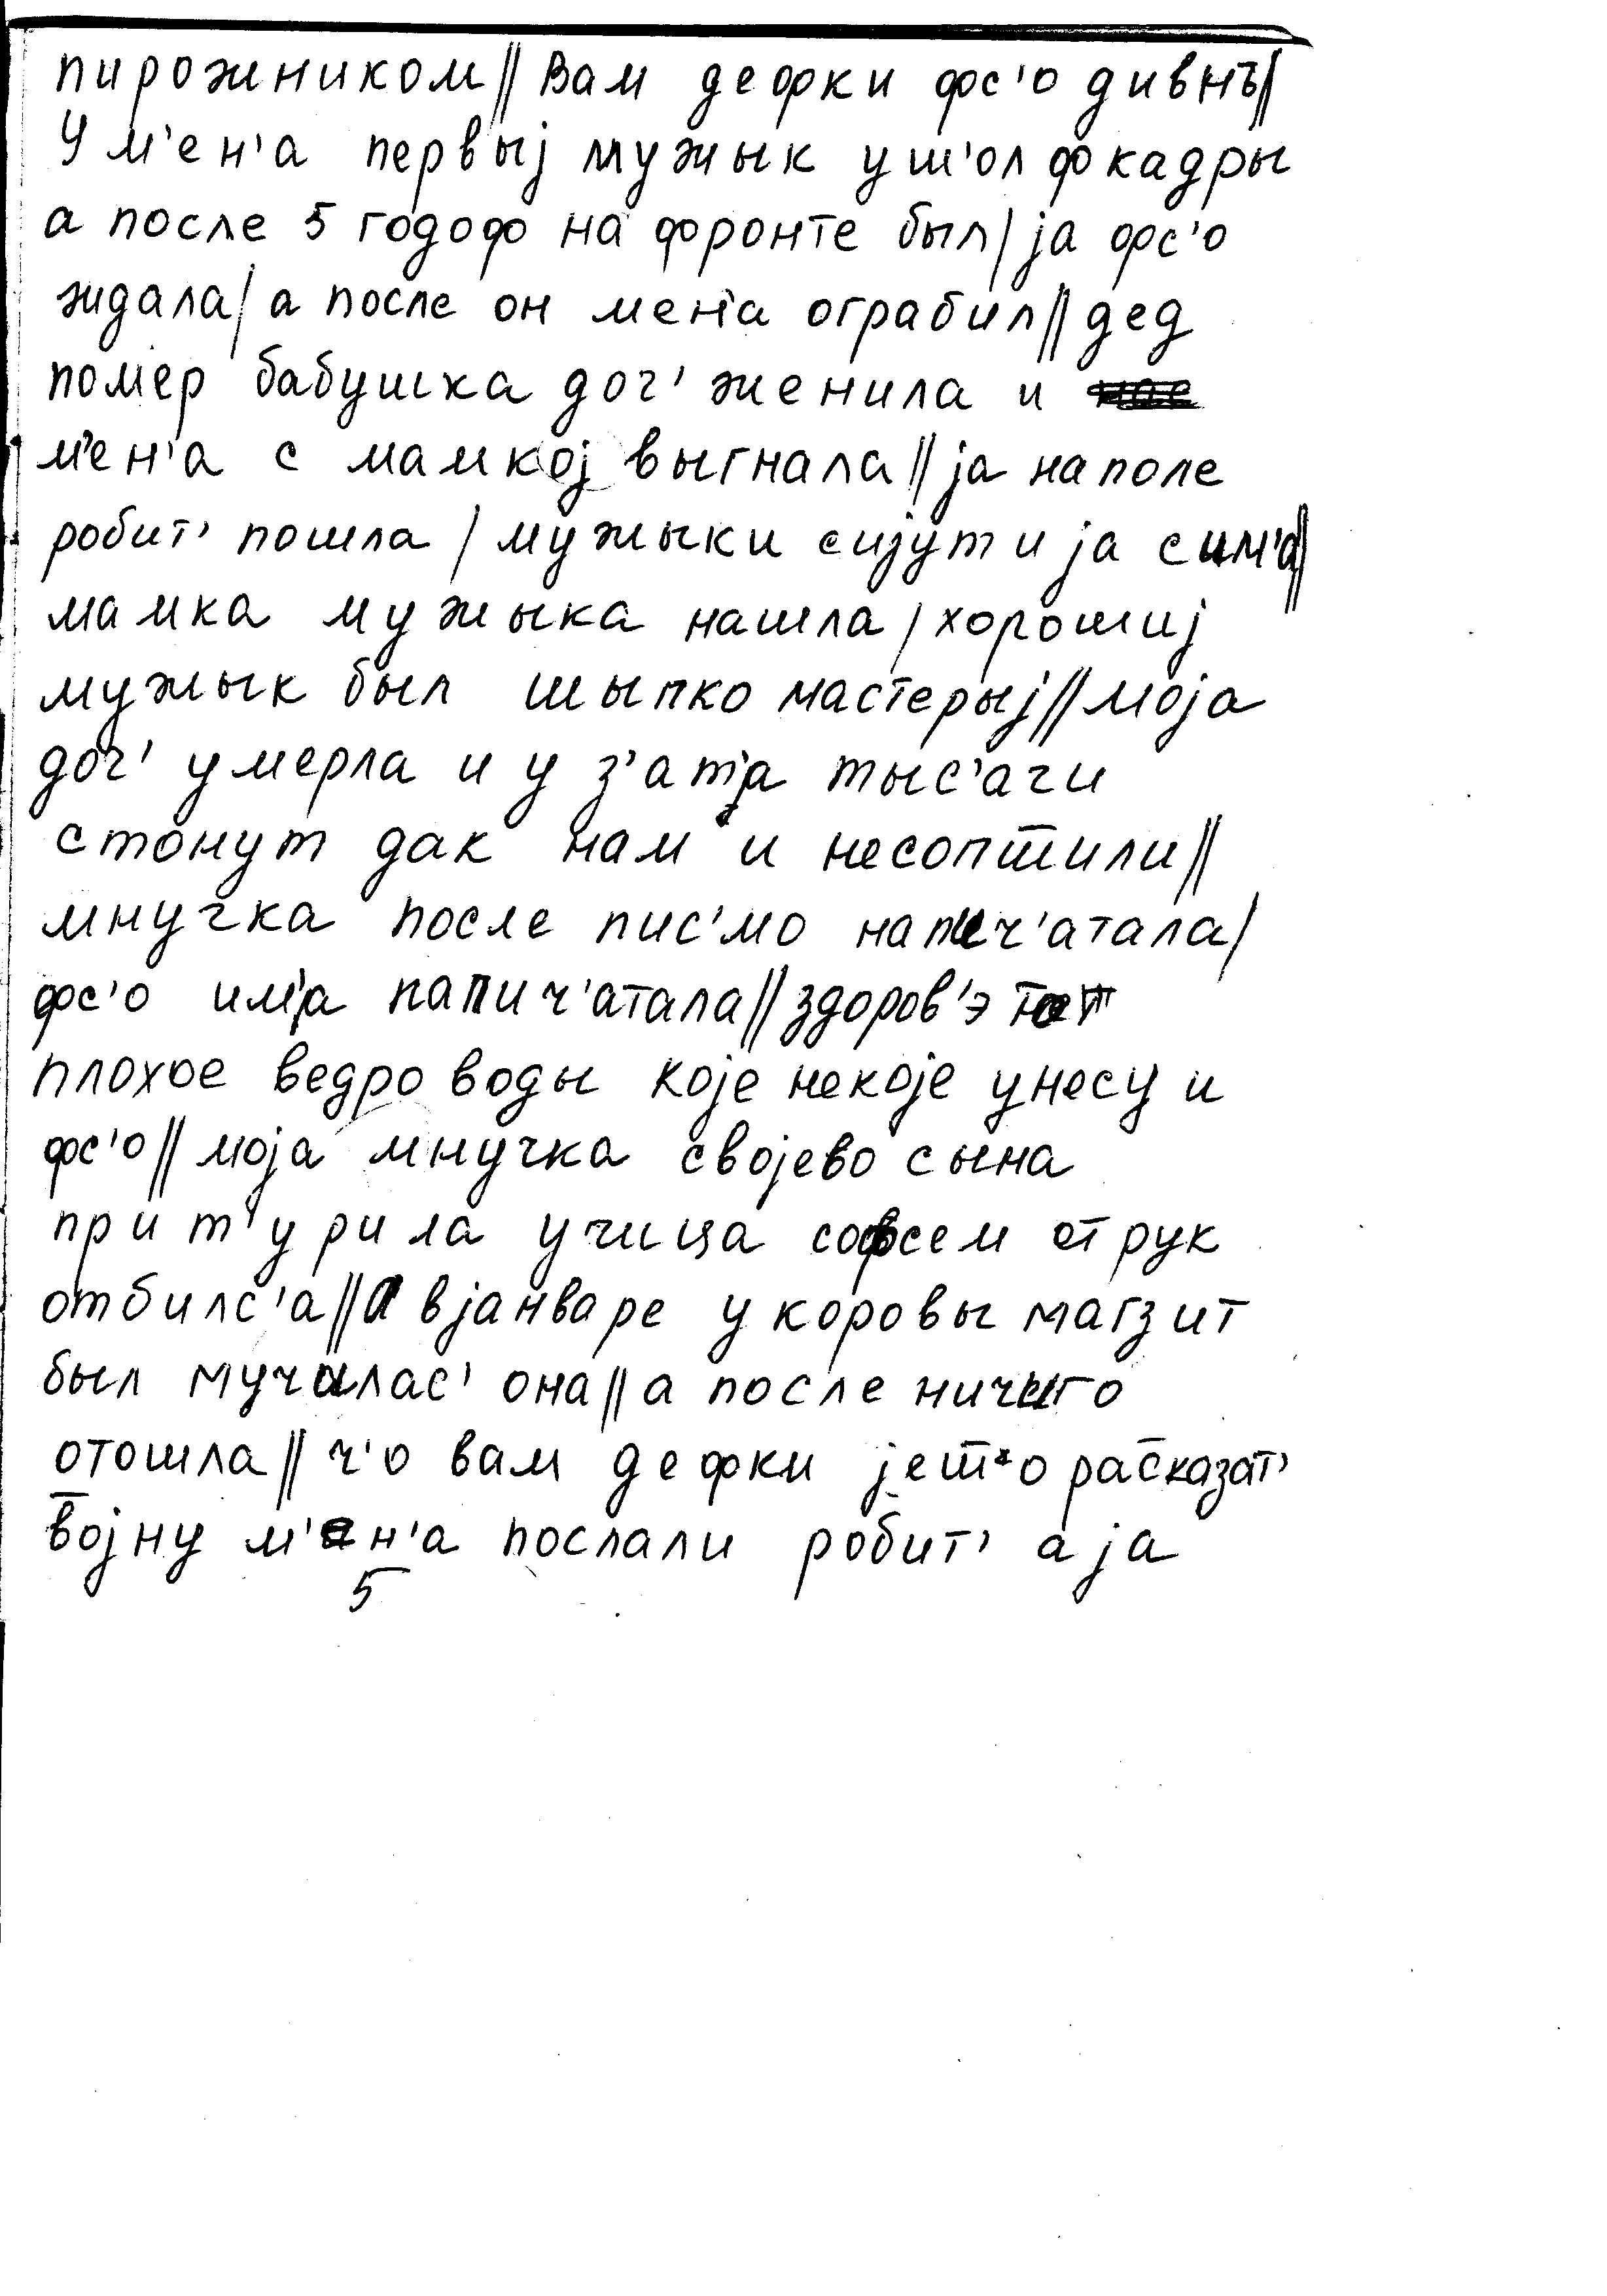 пирожником// Вам дефки фс'о дивнъ//
У м'ен'а первыj мужык уш'ол ф кадры
а после 5 годоф на фронте был/ jа фс'о
ждала/ а после он мен'а ограбил// дед
помер бабушка доч' женила и
м'ен'а с мамкоj выгнала// jа на поле
робит' пошла / мужыки сиjут и jа сим'а//
мамка мужыка нашла / хорошиj
мужык был шыпко мастерыj// моjа
доч' умерла и у з'ат'а тыс'ачи
стонут дак нам и несоптили//
мнучка после пис'мо напич'атала/
фс'о им'а напич'атала// здоров'э
плохое ведро воды коjе некоjе унесу и
фс'о// моjа мнучка своjево сына
прит'урила учица софсем от рук
отбилс'а// А в jанваре у коровы магзит
был мучилас' она// а после ничиго
отошла// ч'о вам дефки расказат'
воjну м'ен'а послали робит' а jа
5